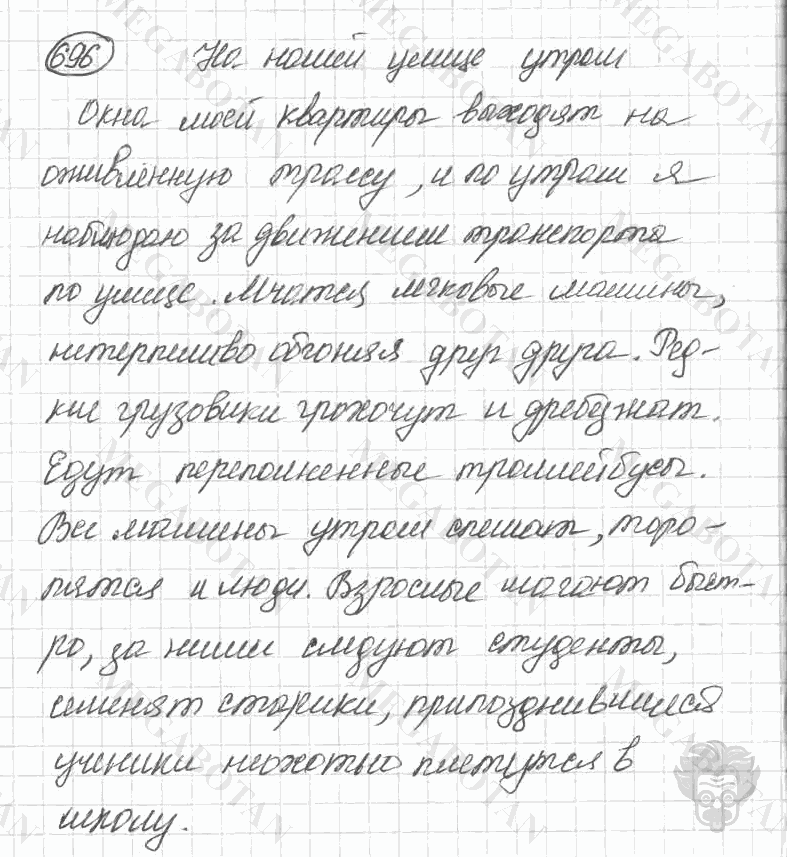 696 На нашей улице утром
Окна моей квартиры выходят на
оживлённую трассу, и по утрам я
наблюдаю за движением транспорта
по улице. Мчатся легковые машины,
нетерпеливо обгоняя друг друга. Ред-
кие грузовики грохочут и дребезжат.
Едут переполненные троллейбусы.
Все машины утром спешат, торо-
пятся и люди. Взрослые шагают быст-
ро, за ними следуют студенты,
семенят старики, припозднившиеся
ученики неохотно плетутся в
школу.
MEGABOTAN